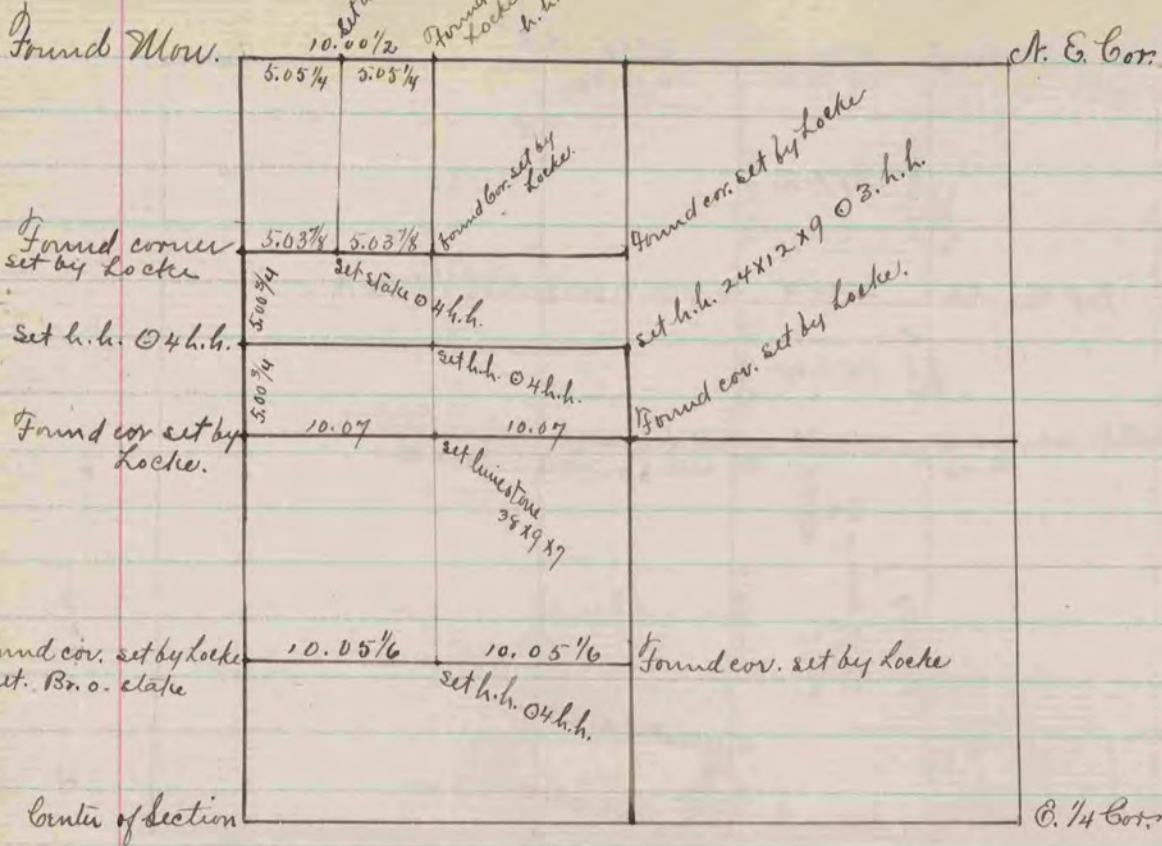 Found Mon.
10.00½
Set
Found
Locke
h.h.
N. E. Cor.
5.05¼ 5.05¼
Found Cor. set by
Locke.
Found cor. set by Locke
Found corner
set by Locke
5.03⅞ 5.03⅞
set stake ⊙ 4 h.h.
5.00¾
set h.h. 24x12x9 ⊙ 3. h.h.
set h.h. ⊙ 4 h.h.
set h.h. ⊙ 4 h.h.
5.00¾
Found cor. set by Locke.
Found cor set by
Locke.
10.07 10.07
set limestone
38x9x7
cor. set by Locke
Br. o. stake
10.05⅙ 10.05⅙
Found cor. set by Locke
set h.h. ⊙ 4 h.h.
Center of Section
E. ¼ Cor.